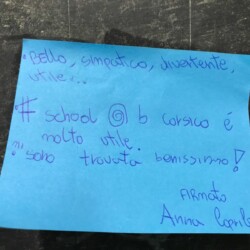 • Bello, simpatico, divertente,
utile...
# school @ b corsico é
molto utile.
sono trovata benissimo!
FIRMATO
Anna